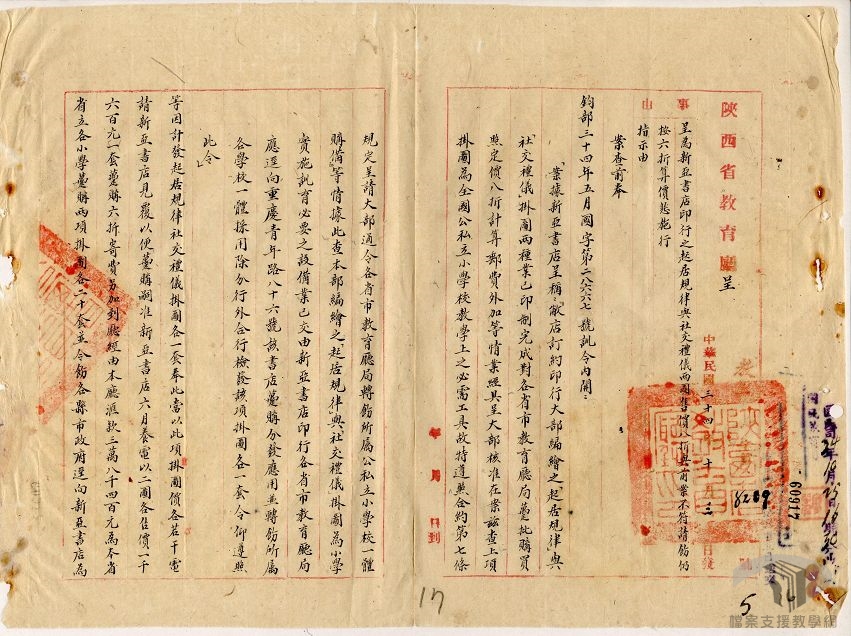 陝西省教育廳 呈
事由
呈為新亞書店印行之起居規律與社交禮儀兩圖售價八折與前業不符請飭仍
按六折算價懇施行
指示由
中華民國三十四 十 三 日發
8209
60917
案查前奉
鈞部三十四年五月國字第二八六六七號訓令內開：
「業據新亞書店呈稱：『敝店訂約印行大部編繪之『起居規律』與
『社交禮儀』掛圖兩種業已印制完成對各省市教育廳局躉批購買
照定價八折計算郵費外加等情業經具呈大部核准在案茲查上項
掛圖為全國公私立小學校教學上之必需工具故特遵照合約第七條
規定呈請大部通令各省市教育廳局轉飭所屬公私立小學校一體
購備』等情據此查本部編繪之『起居規律』與『社交禮儀』掛圖為小學
實施訓育必要之設備業已交由新亞書店印行各省市教育廳局
應逕向重慶青年路八十六號該書店躉購分發應用並轉飭所屬
各學校一體採用除分行外合行檢發該項掛圖各一套令仰遵照
此令
年 月 日到
等因計發起居規律社交禮儀掛圖各一套奉此當以此項掛圖價各若干電
請新亞書店見覆以便躉購嗣准新亞書店六月養電以二圖各售價一千
六百元一套躉購六折寄費另加到廳經由本廳滙款三萬八千四百元為本省
省立各小學躉購兩項掛圖各二十套並令飭各縣市政府逕向新亞書店為
17
5
檔案支援教學網